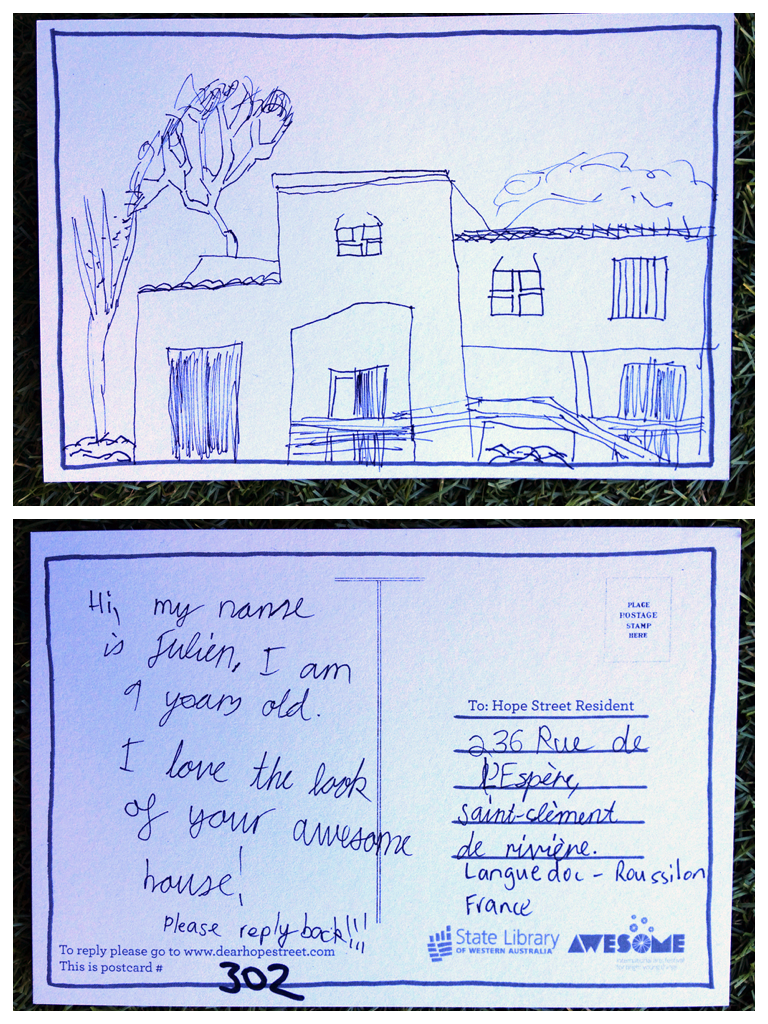 Hi, my name
is Julien, I am
9 years old.
I love the look
of your awesome
house!
Please reply back!!!
To reply please go to www.dearhopestreet.com
This is postcard # 302
PLACE
POSTAGE
STAMP
HERE
To: Hope Street Resident
236 Rue de
l'Espère,
saint-clèment
de rivière.
Languedoc - Roussilon
France
State Library
OF WESTERN AUSTRALIA
AWESOME